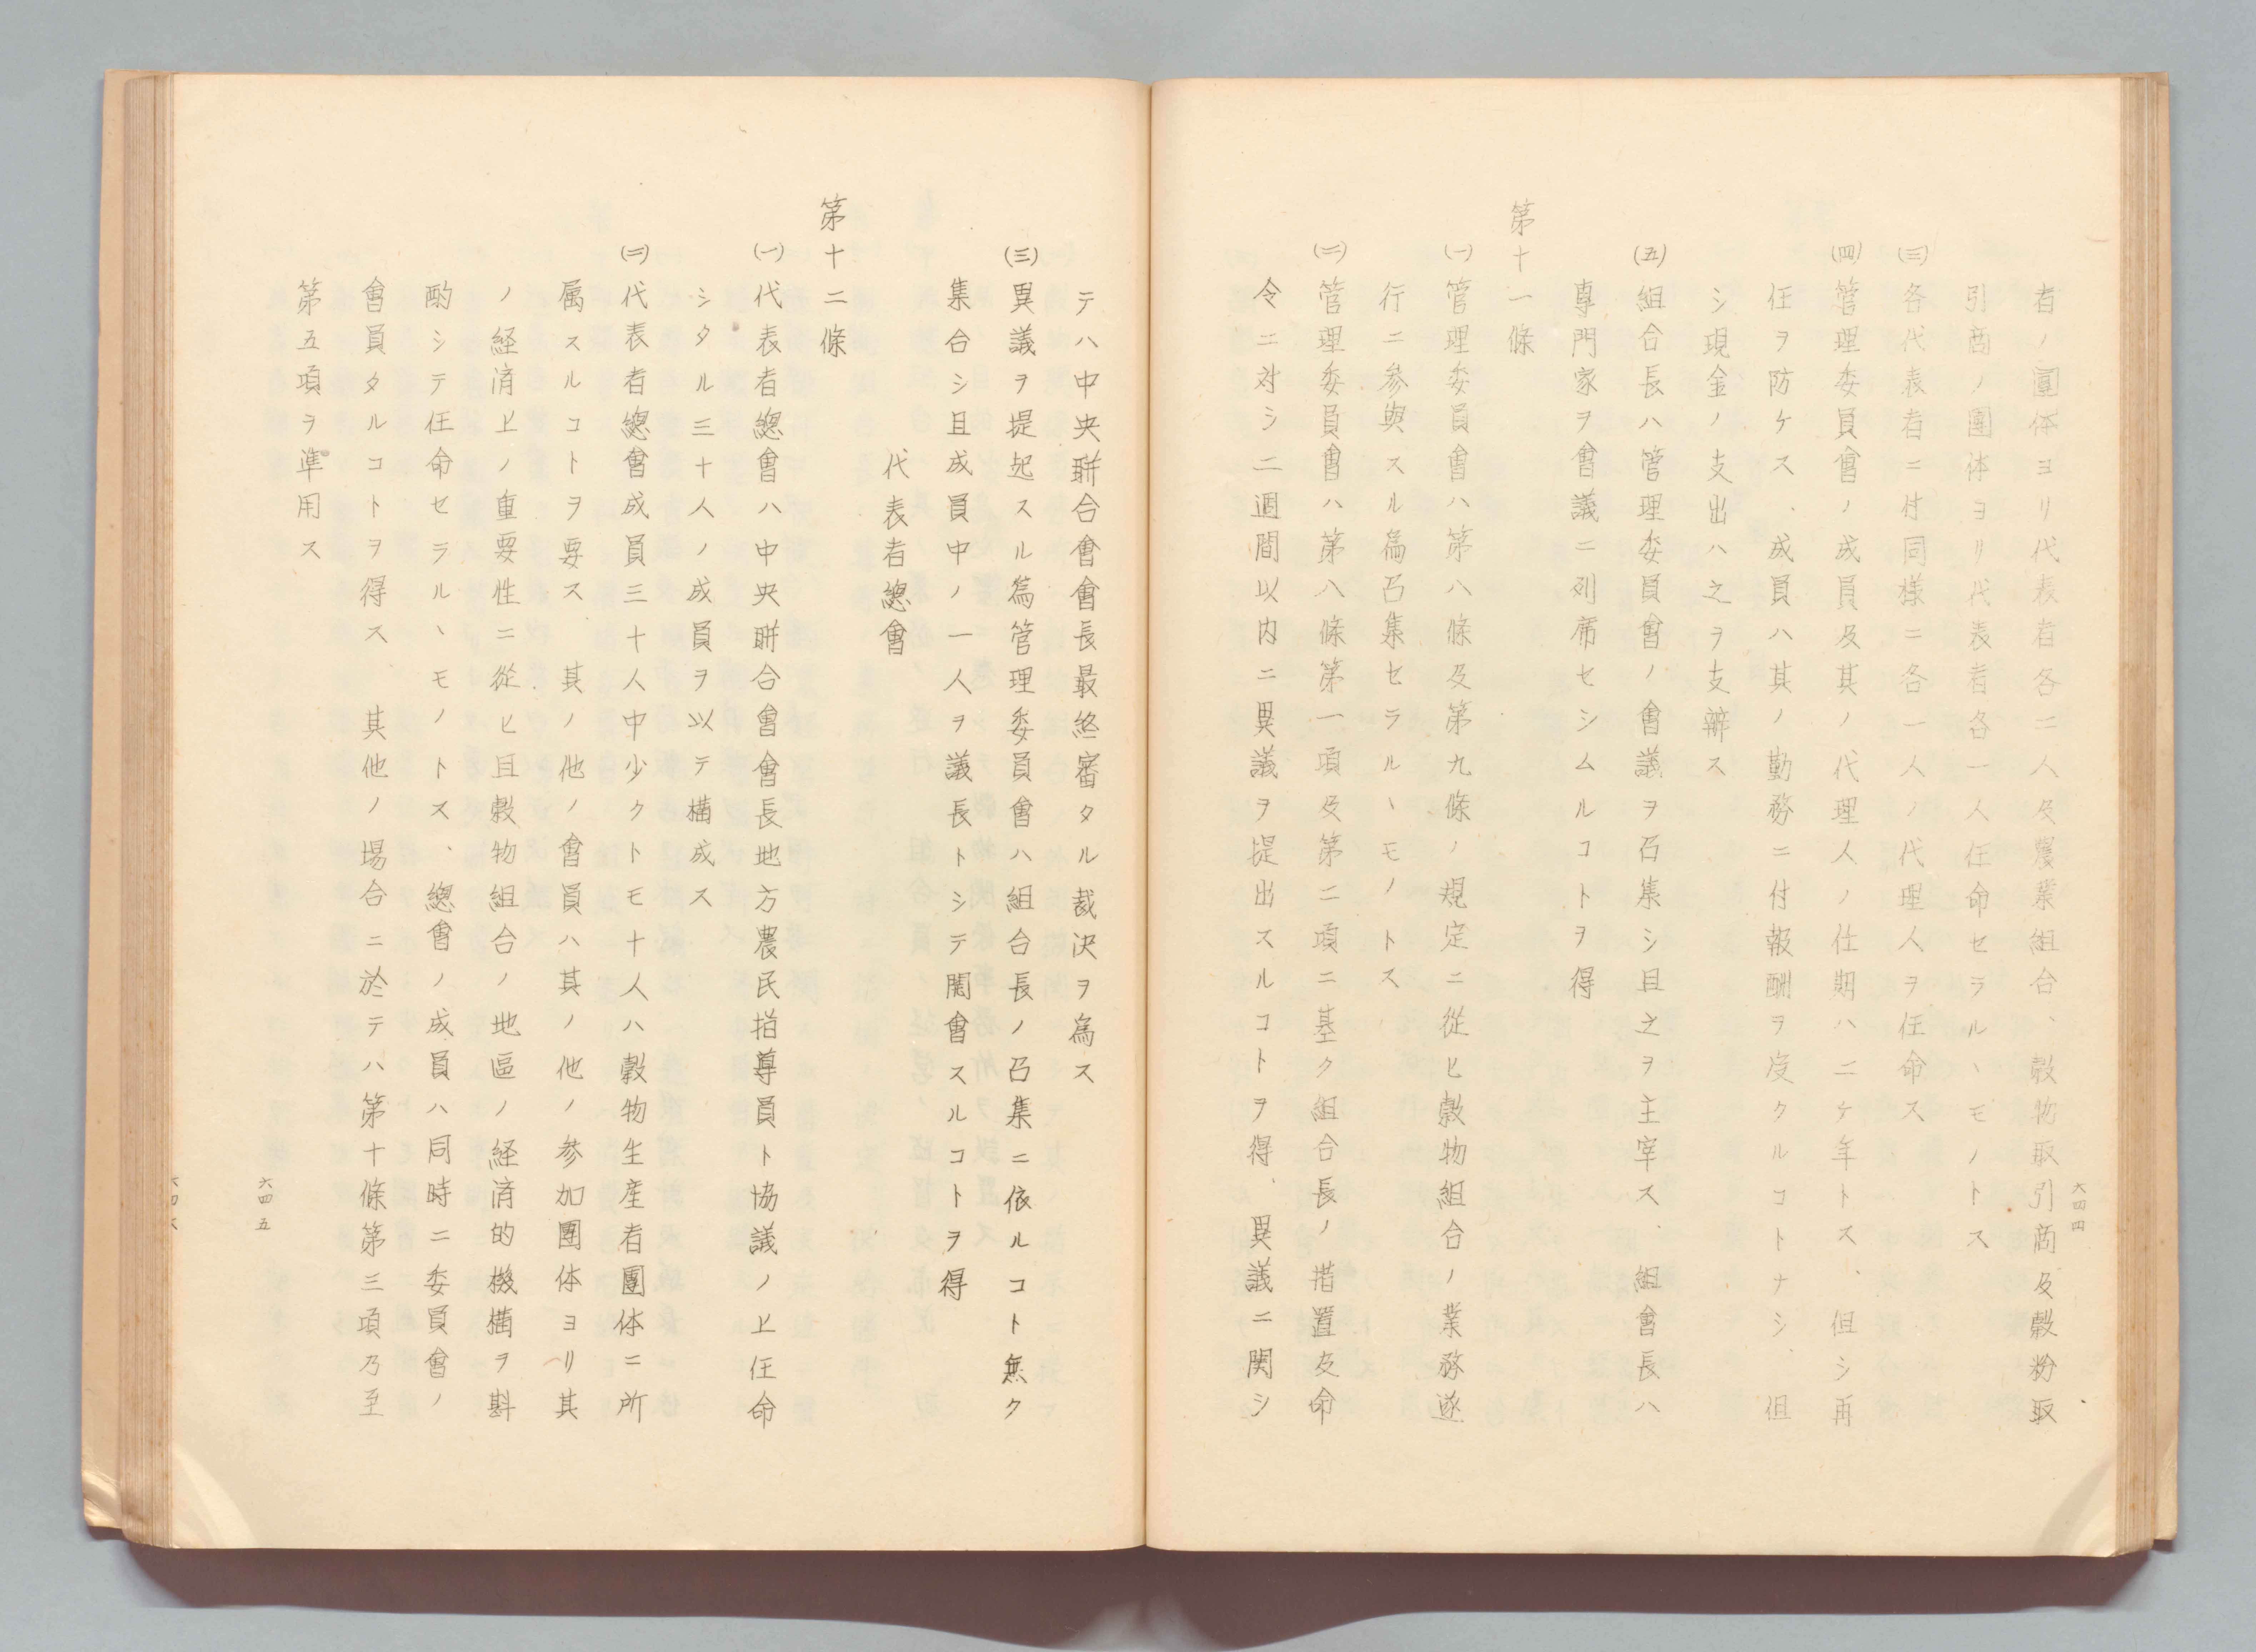 六四四
者ノ團体ヨリ代表者各二人及農業組合、穀物取引商及穀粉取
引商ノ團体ヨリ代表者各一人任命セラルヽモノトス
(三)各代表者ニ付同様ニ各一人ノ代理人ヲ任命ス
(四)管理委員會ノ成員及其ノ代理人ノ任期ハ二ケ年トス、但シ再
任ヲ防ケス、成員ハ其ノ勤務ニ付報酬ヲ受クルコトナシ、但
シ現金ノ支出ハ之ヲ支辦ス
(五)組合長ハ管理委員會ノ會議ヲ召集シ且之ヲ主宰ス、組會長ハ
専門家ヲ會議ニ列席セシムルコトヲ得
第十一條
(一)管理委員會ハ第八條及第九條ノ規定ニ從ヒ穀物組合ノ業務遂
行ニ参與スル為召集セラルヽモノトス
(二)管理委員會ハ第八條第一項及第二項ニ基ク組合長ノ措置及命
令ニ対シ二週間以内ニ異議ヲ提出スルコトヲ得、異議ニ関シ
テハ中央聯合會會長最終審タル裁決ヲ為ス
(三)異議ヲ提起スル為管理委員會ハ組合長ノ召集ニ依ルコト無ク
集合シ且成員中ノ一人ヲ議長トシテ開會スルコトヲ得
代表者總會
第十二條
(一)代表者總會ハ中央聯合會會長地方農民指導員ト協議ノ上任命
シタル三十人ノ成員ヲ以テ構成ス
(二)代表者總會成員三十人中少クトモ十人ハ穀物生産者團体ニ所
属スルコトヲ要ス　其ノ他ノ會員ハ其ノ他ノ参加團体ヨリ其
ノ経済上ノ重要性ニ從ヒ且穀物組合ノ地區ノ経済的機構ヲ斟
酌シテ任命セラルヽモノトス、總會ノ成員ハ同時ニ委員會ノ
會員タルコトヲ得ス　其他ノ場合ニ於テハ第十條第三項乃至
第五項ヲ準用ス
六四五